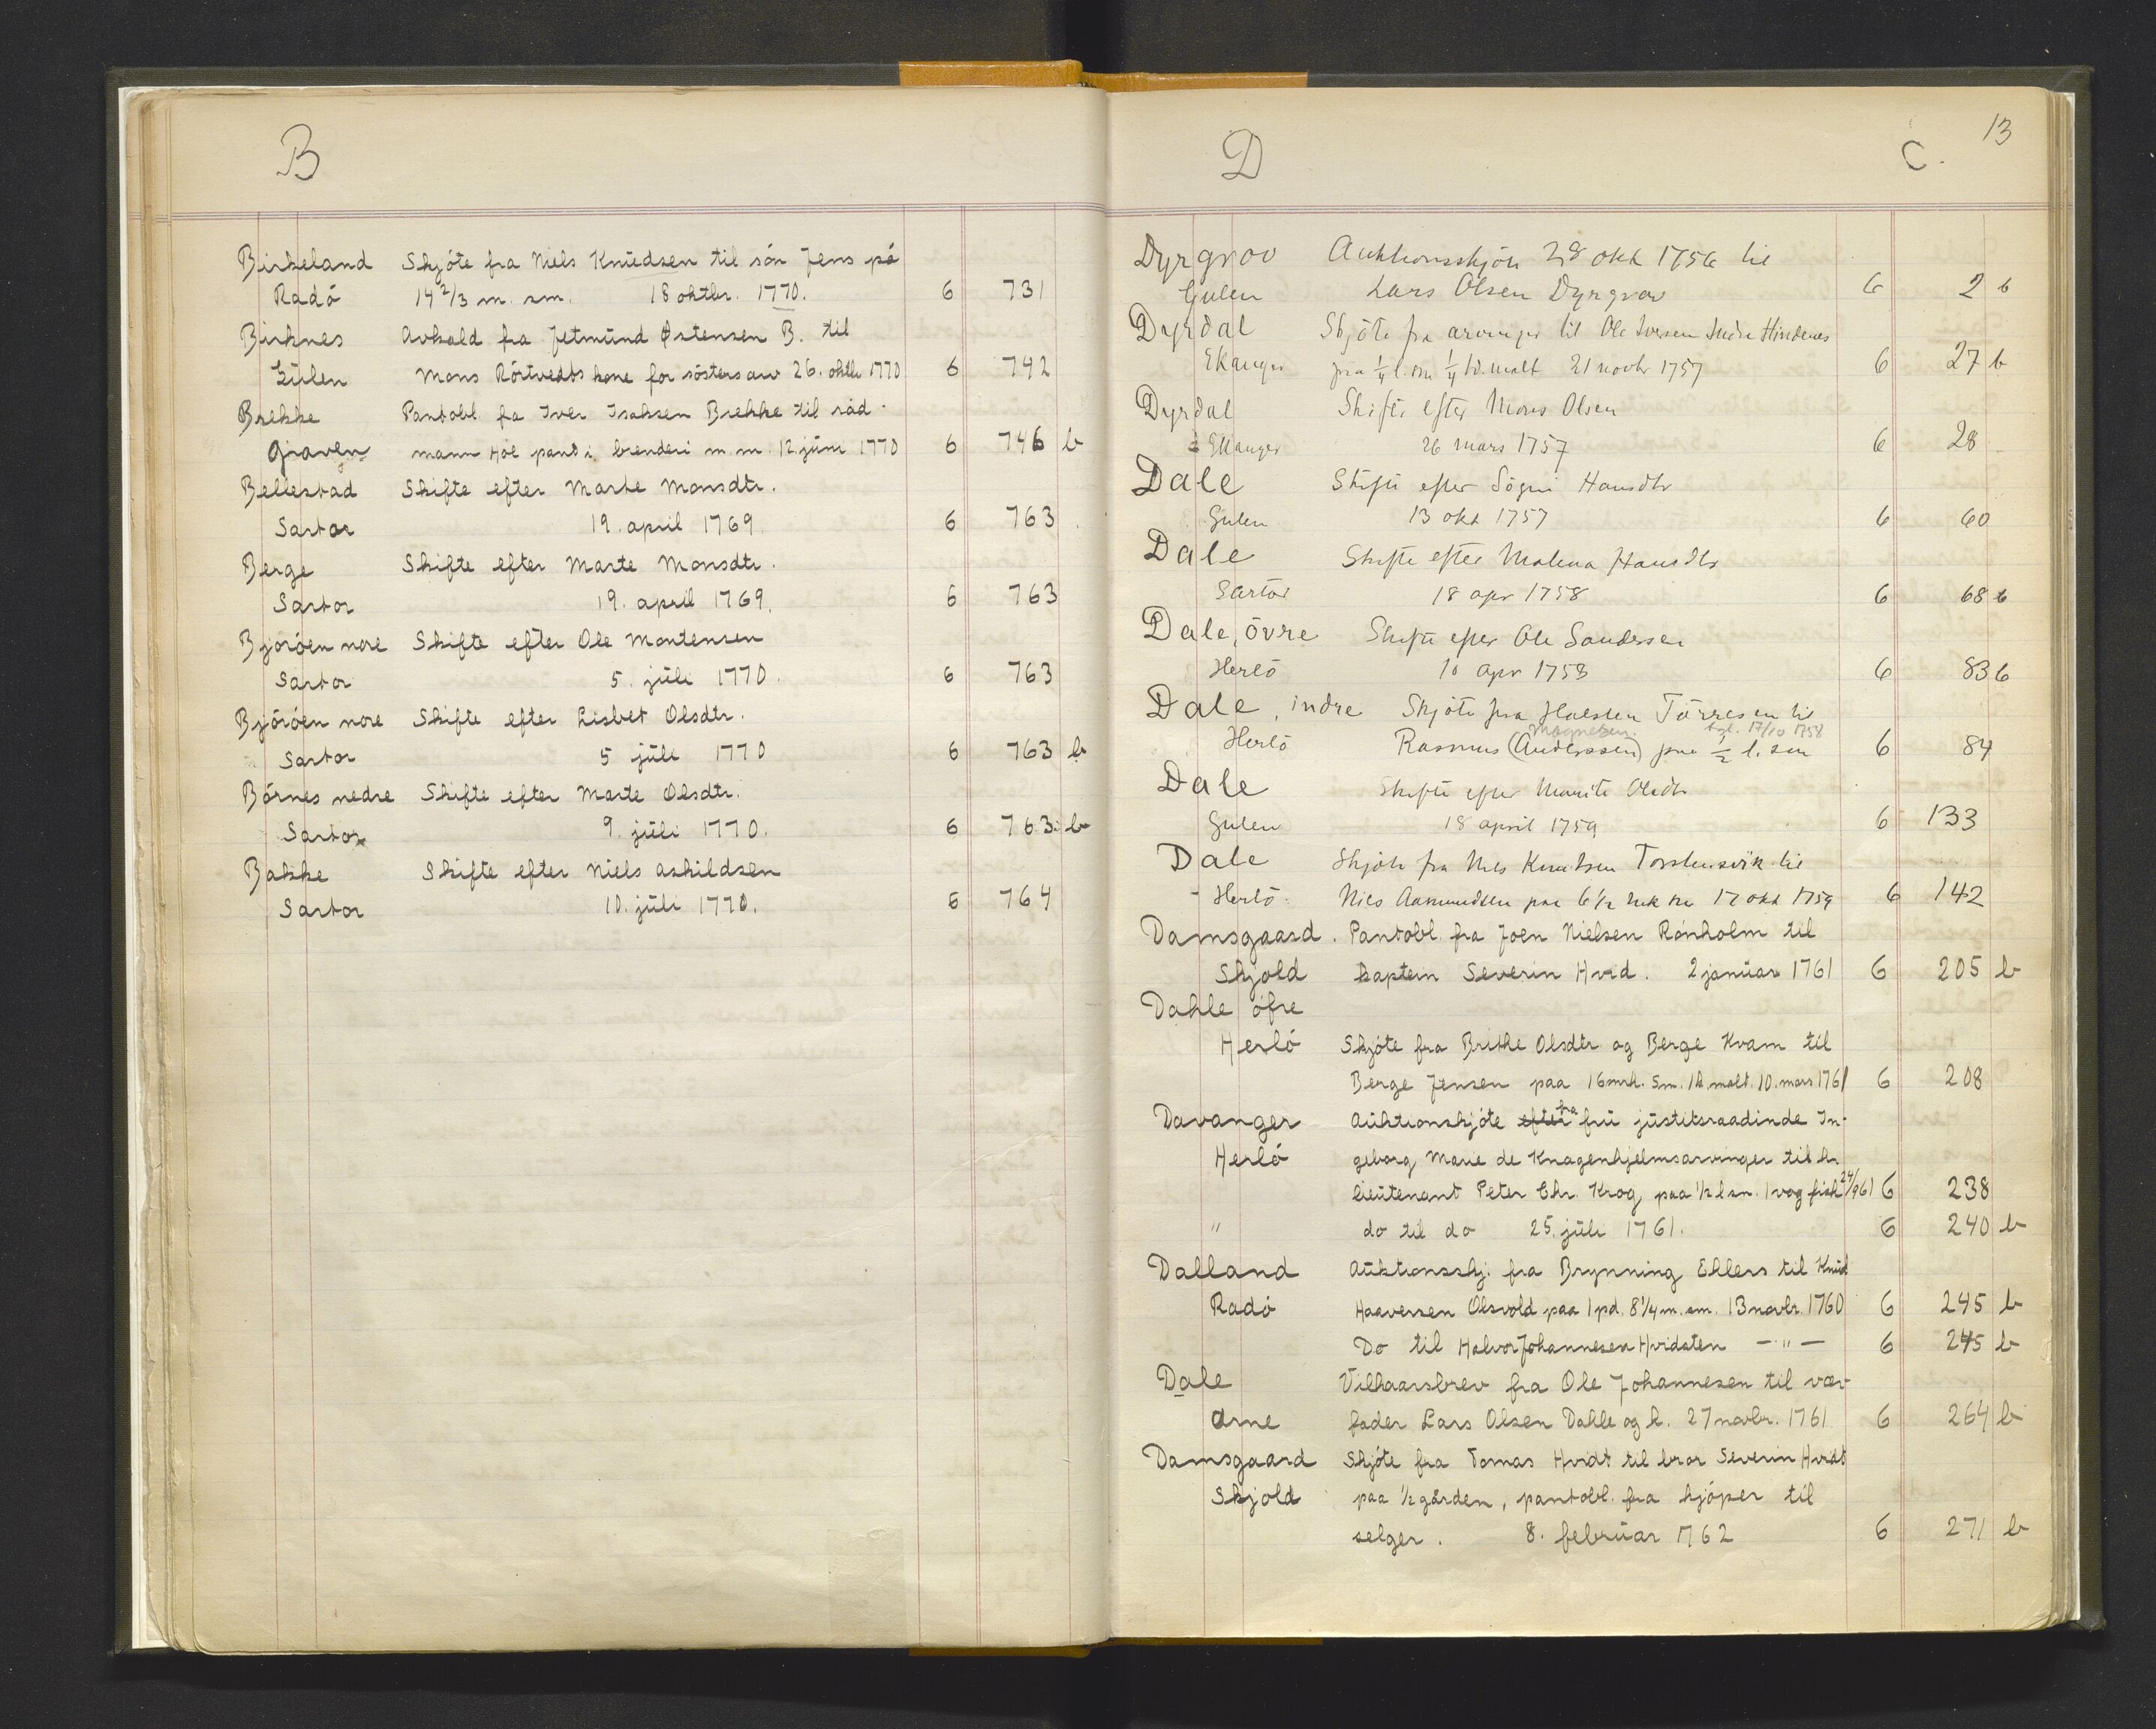 B
Birkeland Skjöte fra Niels Knudsen til sön Jens på
Radö 14 2/3 m. sm. 18 oktbr. 1770. 6 731
Birknes Avkald fra Jetmund Østensen B. til
Gulen Mons Rörtvedts kone for söstersarv 26. oktbr 1770 6 742
Brekke Pantobl. fra Iver Isaksen Brekke til råd-
Graven mann Hoe pant i brenderi m. m. 12. juni 1770 6 746 b
Bellestad Skifte efter Marte Monsdtr.
Sartor 19. april 1769. 6 763
Berge Skifte efter Marte Monsdtr.
Sartor 19. april 1769. 6 763
Bjoröen nore Skifte efter Ole Mortensen
Sartor 5. juli 1770. 6 763
Björöen nore Skifte efter Lisbet Olsdtr.
Sartor 5 juli 1770 6 763 b
Börnes nedre Skifte efter Marte Olsdtr.
Sartor 9. juli 1770. 6 763 b
Bakke Skifte efter Niels Askildsen
Sartor 10. juli 1770. 6 764
D C. 13
Dyrgrov Auktionsskjöte 28 okt 1756 til
Gulen Lars Olsen Dyrgrov 6 2 b
Dyrdal Skjöte fra arvinger til Ole Iversen Indre Hindenes
Ekanger paa 1/4 l. sm 1/4 td. malt 21 novbr 1757 6 27 b
Dyrdal Skifte efter Mons Olsen
Ekanger 26 mars 1757 6 28
Dale Skifte efter Sögni Hansdtr
Gulen 13 okt 1757 6 60
Dale Skifte efter Malena Hansdtr
Sartor 18 apr 1758 6 68 b
Dale, övre Skifte efter Ole Sanderssen
Herlö 10 apr 1758 6 83 b
Dale, indre Skjöte fra Halsten Törresen til
Magnesen tgl. 17/10 1758
Herlö Rasmus (Anderssen) paa 1/2 l. sm 6 84
Dale Skifte efter Marite Olsdtr
Gulen 18 april 1759 6 133
Dale Skjöte fra Nils Knutsen Torsteinsvik til
Herlö Nils Aamundsen paa 6 1/2 mrk sm 17 okt 1759 6 142
Damsgaard. Pantobl. fra Joen Nielsen Rönholm til
Skjold kaptein Severin Hvid. 2 januar 1761 6 205 b
Dahle öfre
Herlö Skjöte fra Brithe Olsdtr og Berge Kvam til
Berge Jensen paa 16 mrk. sm. 1 h. malt. 10. mars 1761 6 208
Davanger Auktionskjöte efter fra fru justitsraadinde In-
Herlö geborg Marie de Knagenhjelms arvinger til hr
lieutenant Peter Chr. Krog paa 1/2 l sm. 1 vog fisk 24/9 61 6 238
" do til do 25. juli 1761. 6 240 b
Dalland Auktionsskj. fra Brynning Ehlers til Knud
Radö Haaversen Olsvold paa 1 pd. 8 1/4 m. sm. 13 novbr. 1760 6 245 b
Do til Halvor Johannesen Hvidsten — " — 6 245 b
Dale Vilkaarsbrev fra Ole Johannesen til vær-
Arne fader Lars Olsen Dahle og h. 27 novbr. 1761 6 264 b
Damsgaard Skjöte fra Tomas Hvidt til bror Severin Hvidt
Skjold paa 1/2 gården, pantobl. fra kjöper til
selger. 8. februar 1762 6 271 b